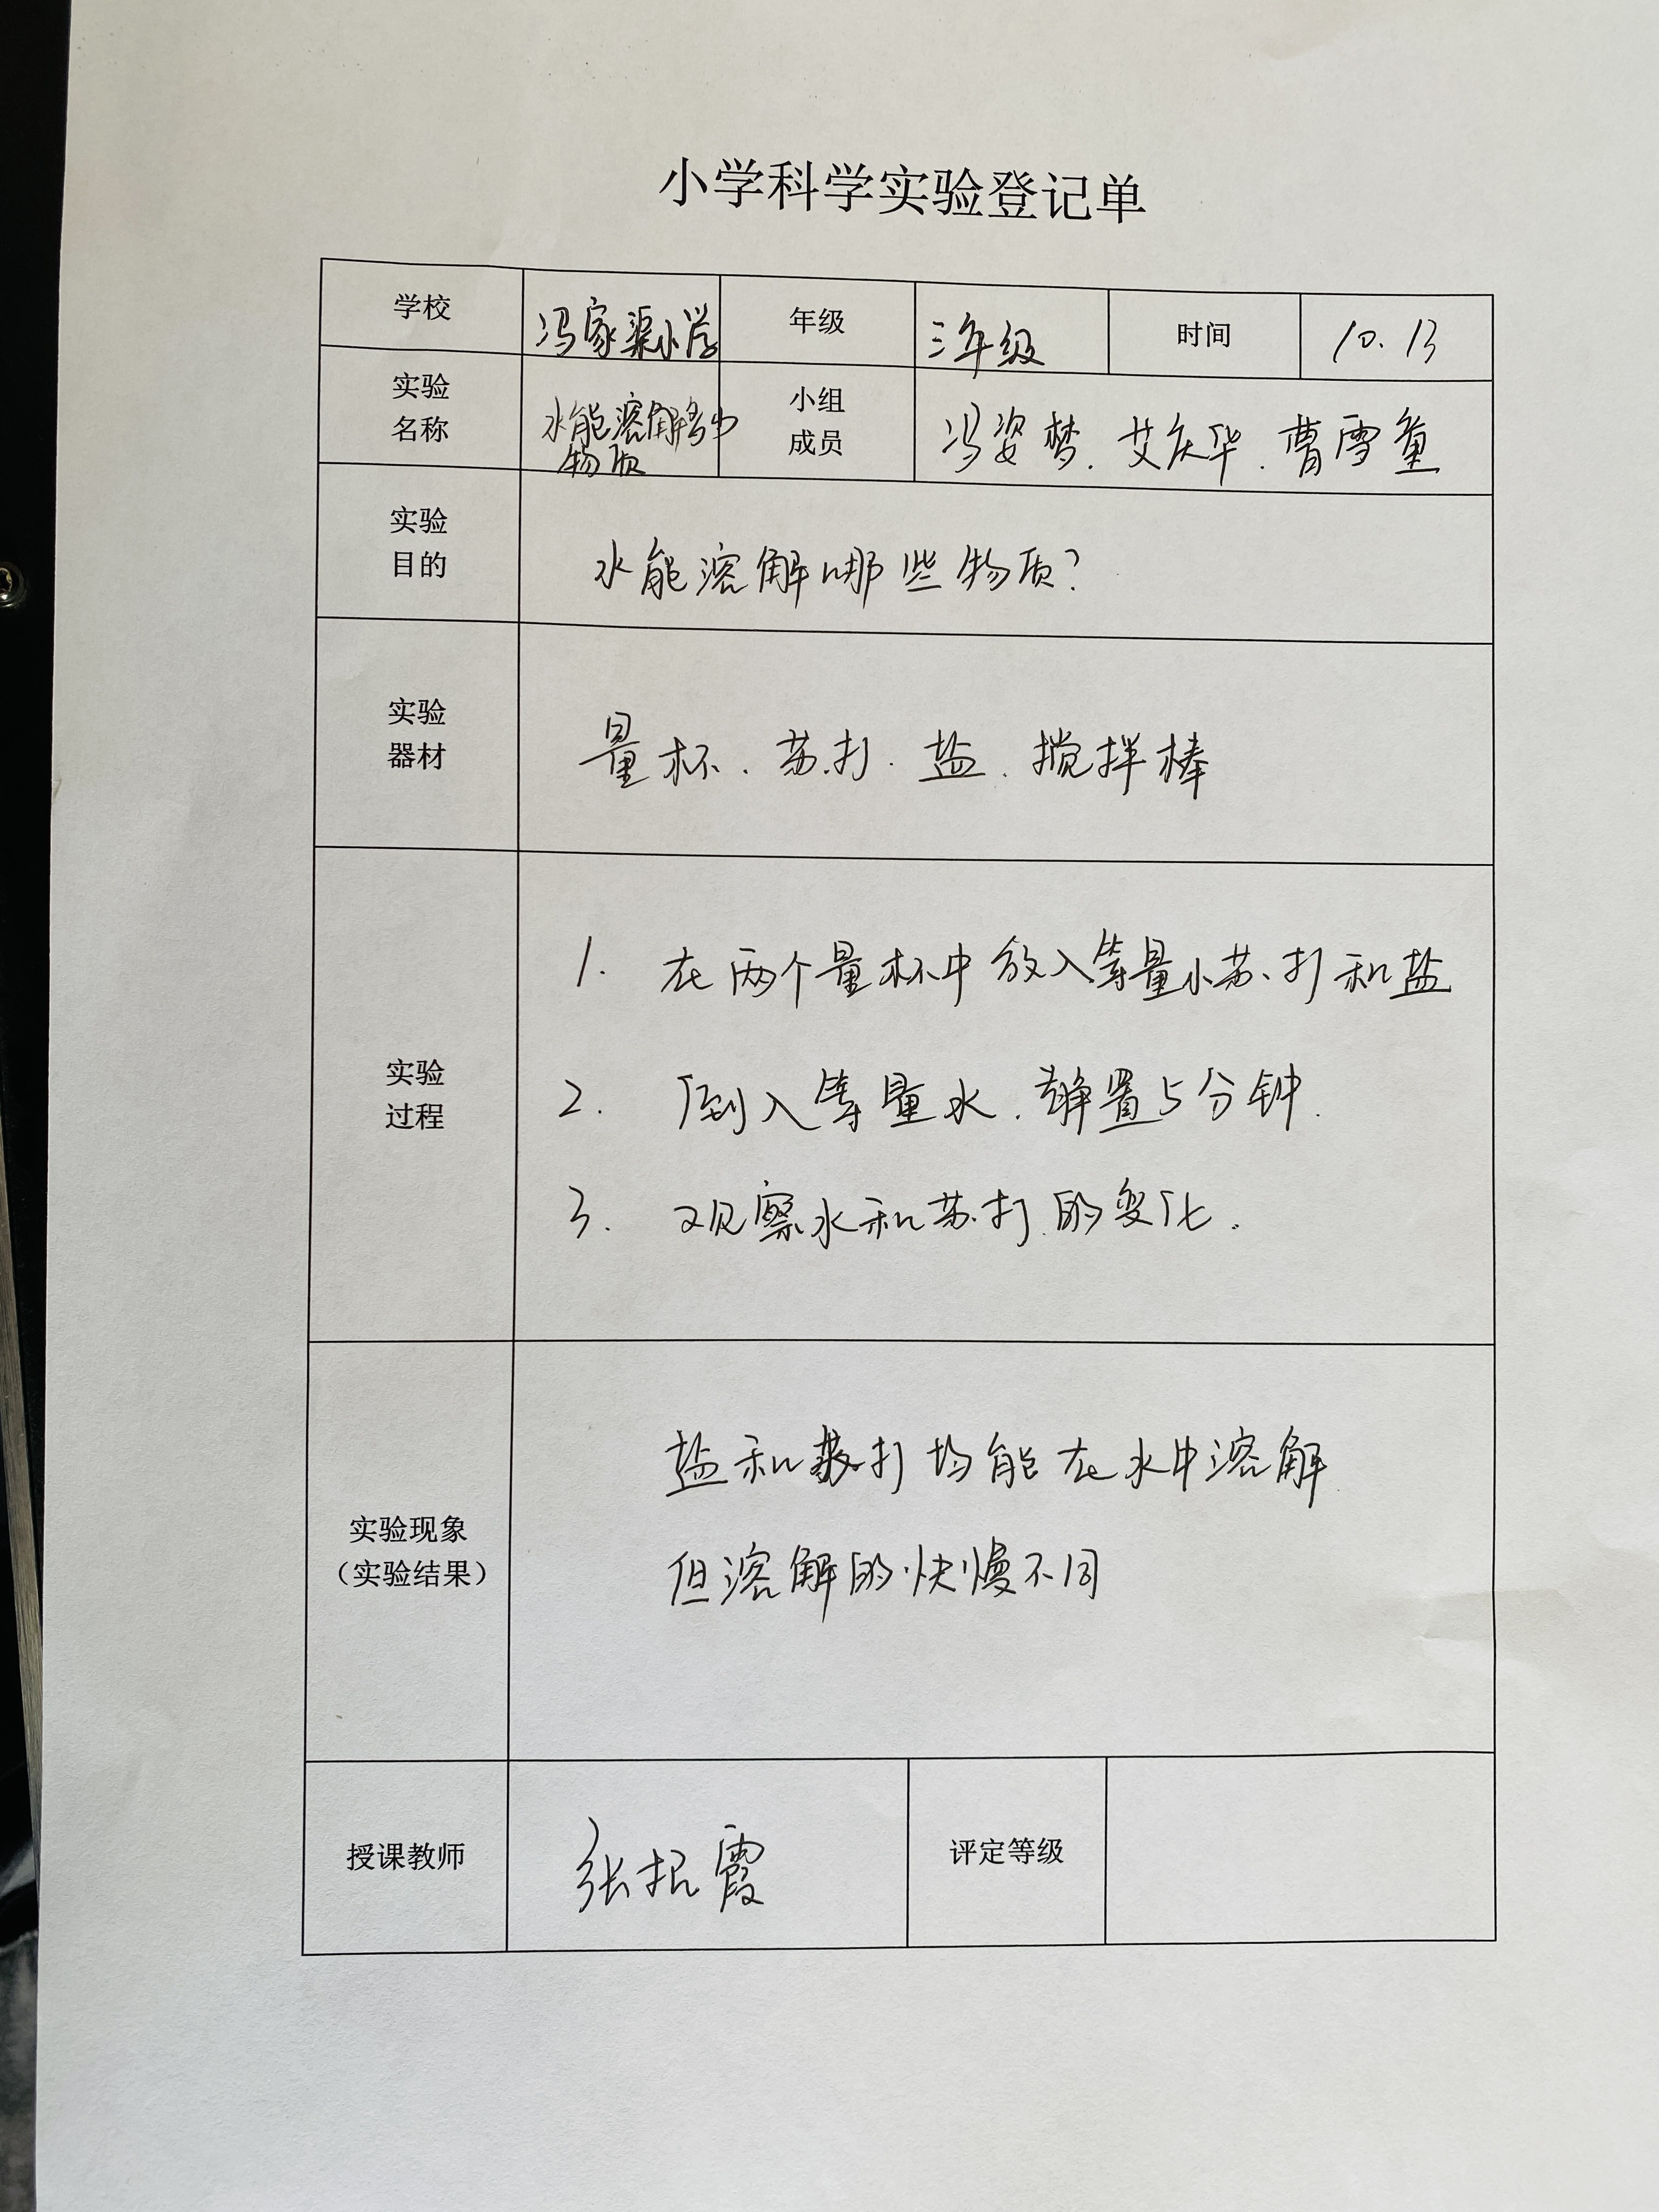 小学科学实验登记单
学校 冯家渠小学 年级 三年级 时间 10.13
实验 水能溶解多少 小组
名称 物质 成员 冯姿梦、艾庆华、曹雪童
实验
目的 水能溶解哪些物质?
实验
器材 量杯、苏打、盐、搅拌棒
1. 在两个量杯中放入等量小苏打和盐
实验
过程 2. 倒入等量水、静置5分钟.
3. 观察水和苏打的变化.
盐和苏打均能在水中溶解
实验现象
(实验结果) 但溶解的快慢不同
授课教师 张振霞 评定等级